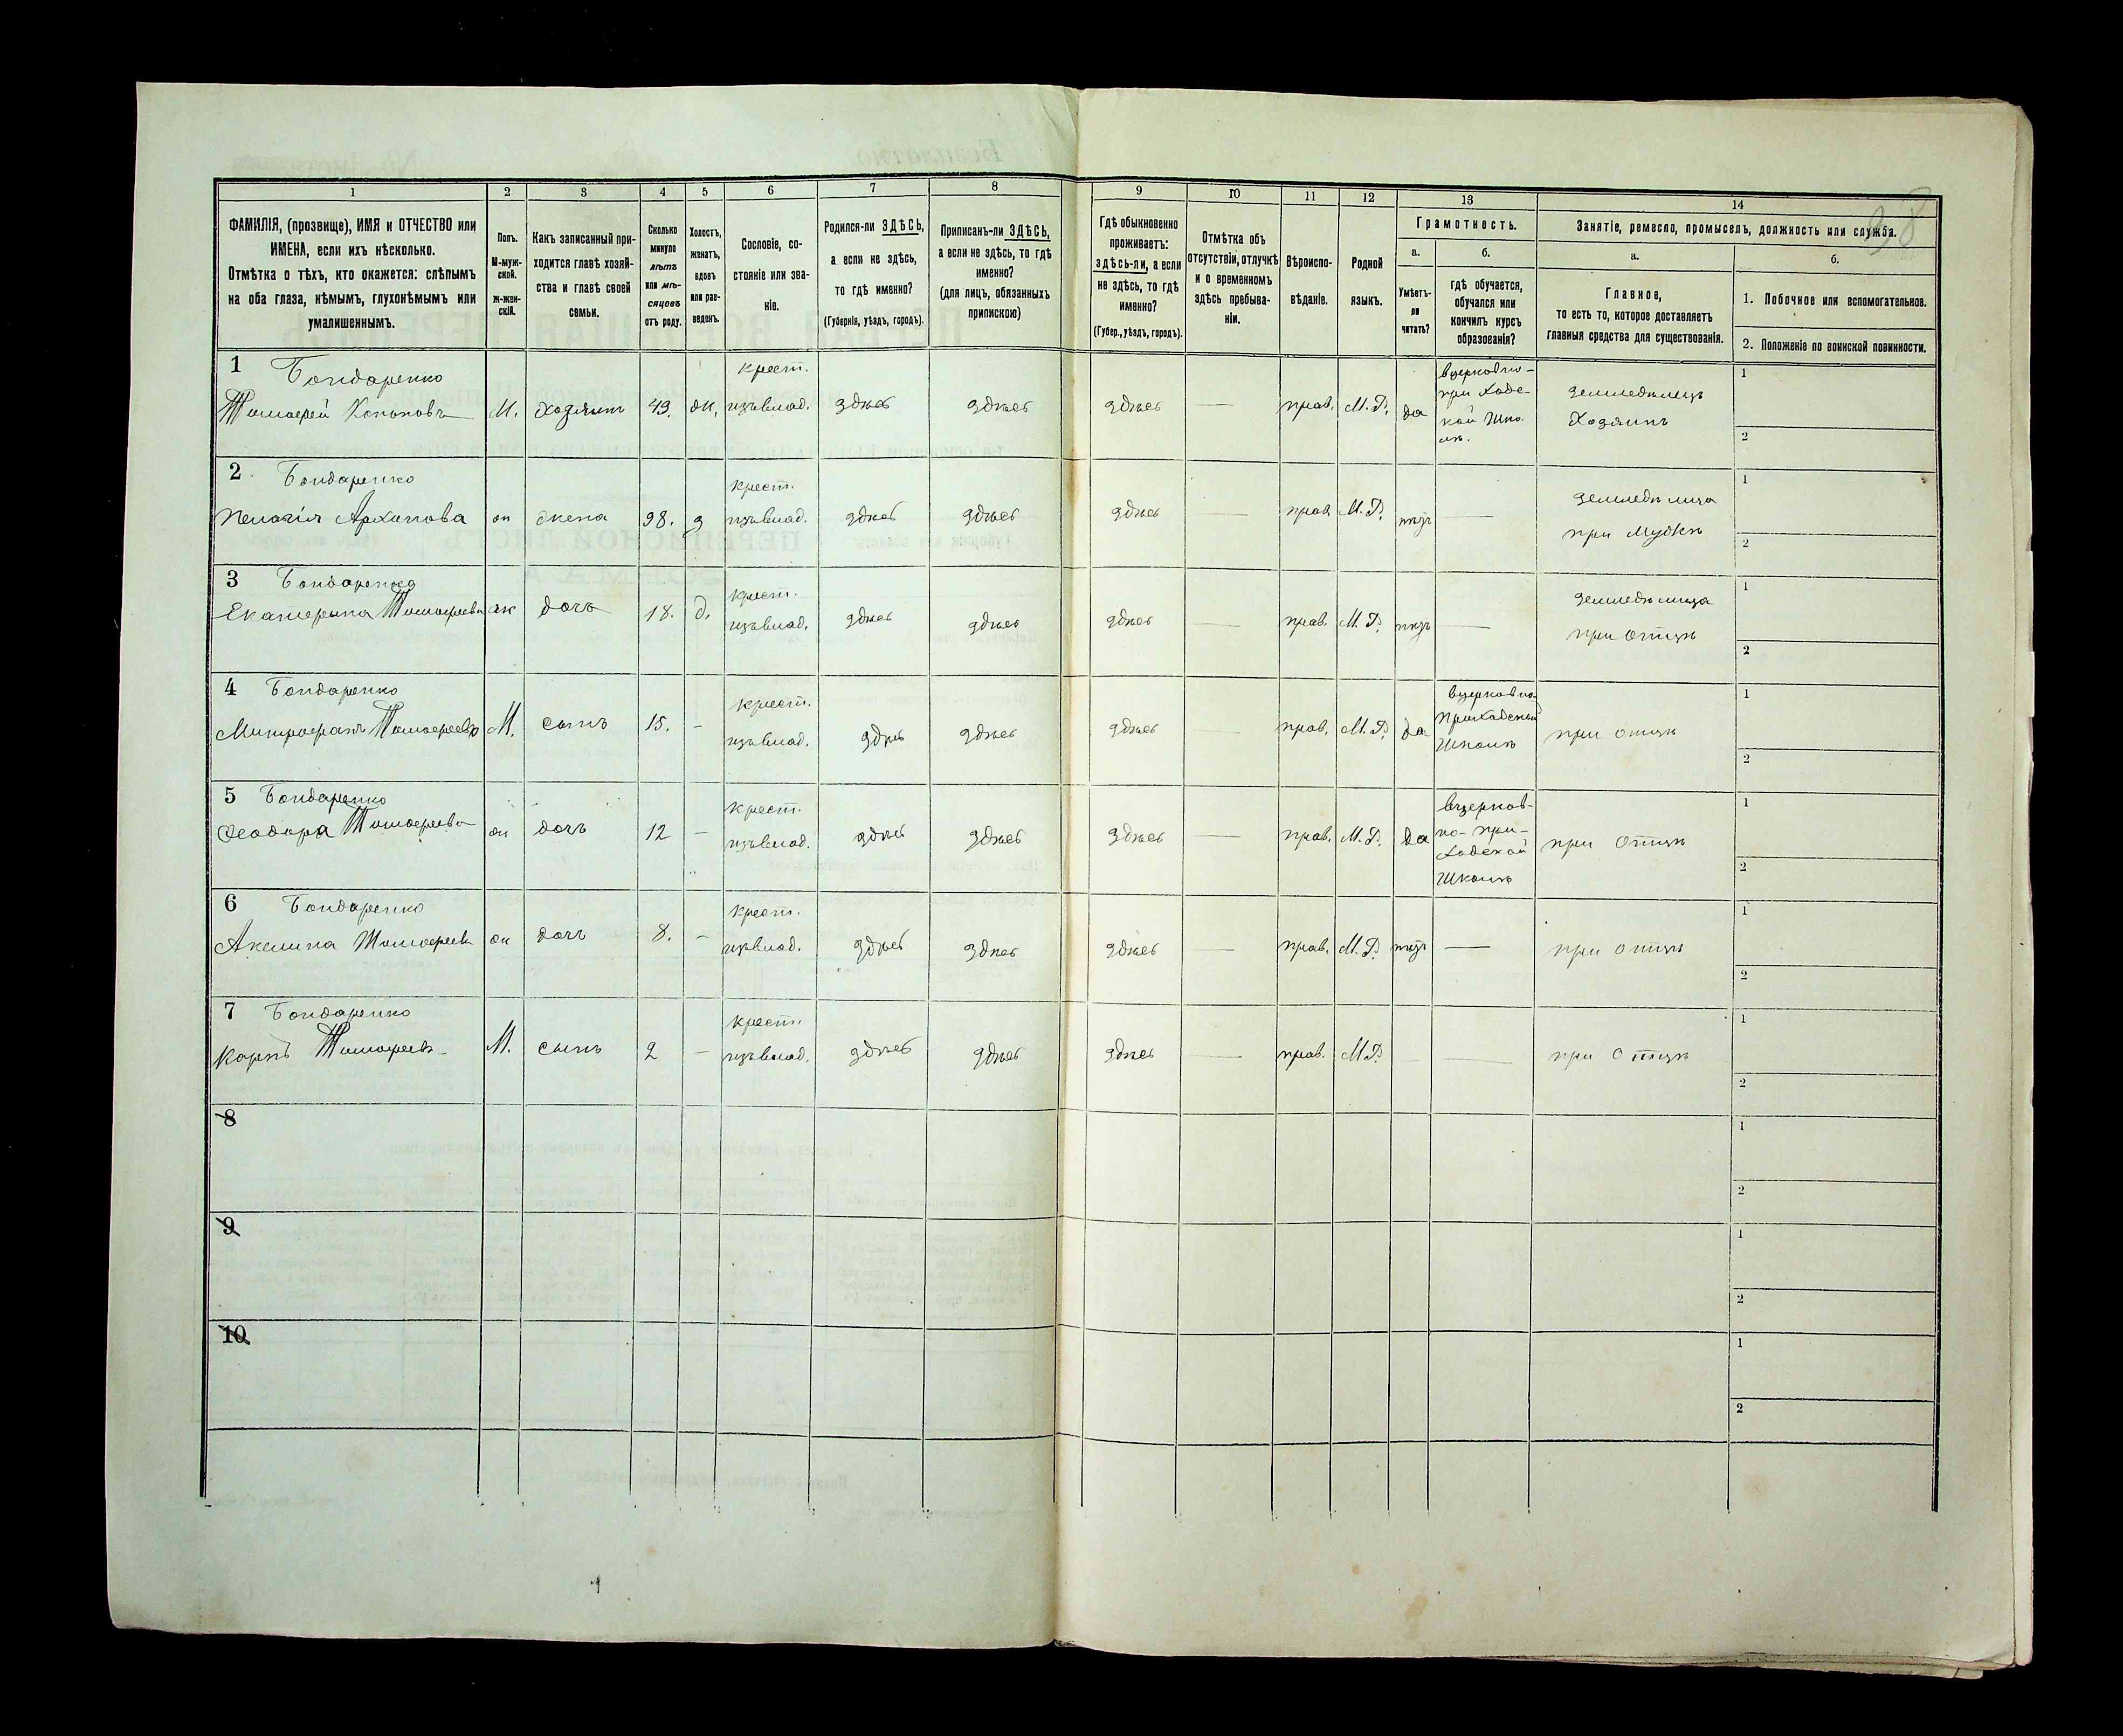 38
1 2 3 4 5 6 7 8 9 10 11 12 13 14
ФАМИЛІЯ, (прозвище), ИМЯ и ОТЧЕСТВО или
ИМЕНА, если ихъ нѣсколько.
Отмѣтка о тѣхъ, кто окажется: слѣпымъ
на оба глаза, нѣмымъ, глухонѣмымъ или
умалишеннымъ.
Полъ.
М-муж-
ской.
ж-жен-
скій.
Какъ записанный при-
ходится главѣ хозяй-
ства и главѣ своей
семьи.
Сколько
минуло
лѣтъ
или мѣ-
сяцевъ
отъ роду.
Холостъ,
женатъ,
вдовъ
или раз-
веденъ.
Сословіе, со-
стояніе или зва-
ніе.
Родился-ли ЗДѢСЬ,
а если не здѣсь,
то гдѣ именно?
(Губернія, уѣздъ, городъ).
Приписанъ-ли ЗДѢСЬ,
а если не здѣсь, то гдѣ
именно?
(для лицъ, обязанныхъ
припискою)
Гдѣ обыкновенно
проживаетъ:
здѣсь-ли, а если
не здѣсь, то гдѣ
именно?
(Губер., уѣздъ, городъ).
Отмѣтка объ
отсутствіи, отлучкѣ
и о временномъ
здѣсь пребыва-
ніи.
Вѣроиспо-
вѣданіе.
Родной
языкъ.
Грамотность.
а.
Умѣетъ-
ли
читать?
б.
гдѣ обучается,
обучался или
кончилъ курсъ
образованія?
Занятіе, ремесло, промыселъ, должность или служба.
а.
Главное,
то есть то, которое доставляетъ
главныя средства для существованія.
б.
1. Побочное или вспомогательное.
2. Положеніе по воинской повинности.
1 Бондаренко
Тимофей Кононовъ М. Хозяинъ 43. ж. крест. изъ влад. здѣсь здѣсь здѣсь — прав. М. Р. да
в церковно-
при ходс-
кой Шко
лѣ.
Земледѣлецъ
Хозяинъ
1
2
2 Бондаренко
Пелагія Архипова ж жена 38. з крест. изъ влад. здѣсь здѣсь здѣсь — прав. М. Р. нѣтъ —
Земледѣлица
при Мужѣ
1
2
3 Бондаренко
Екатерина Тимофеева ж дочь 18. д. крест. изъ влад. здѣсь здѣсь здѣсь — прав. М. Р. нѣтъ —
Земледѣлица
при отцѣ
1
2
4 Бондаренко
Митрофанъ Тимофеевъ М. сынъ 15. - крест. изъ влад. здѣсь здѣсь здѣсь — прав. М. Р. да
в церковно
Приходской
Школѣ
при отцѣ
1
2
5 Бондаренко
Феодора Тимофеева ж дочь 12 — крест. изъ влад. здѣсь здѣсь здѣсь — прав. М. Р. да
в церков-
но-при-
ходской
Школѣ
при отцѣ
1
2
6 Бондаренко
Акелина Тимофеев ж дочь 8. — крест. изъ влад. здѣсь здѣсь здѣсь — прав. М. Р. нѣтъ —
при отцѣ
1
2
7 Бондаренко
Карпъ Тимофеевъ М. сынъ 2 — крест. изъ влад. здѣсь здѣсь здѣсь — прав. М. Р. —
при отцѣ
1
2
8
1
2
9
1
2
10
1
2